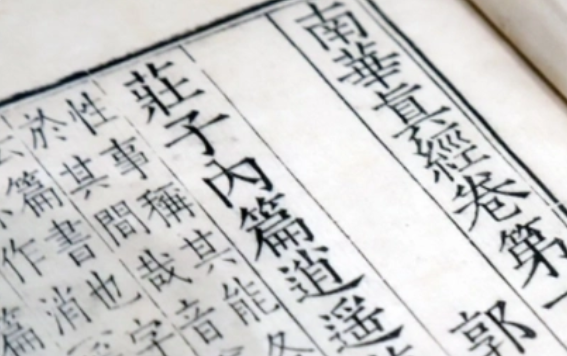 南華真經卷第一
郭
莊子內篇逍遥
性事稱其能
於其間哉音
篇書也字
作消
篇